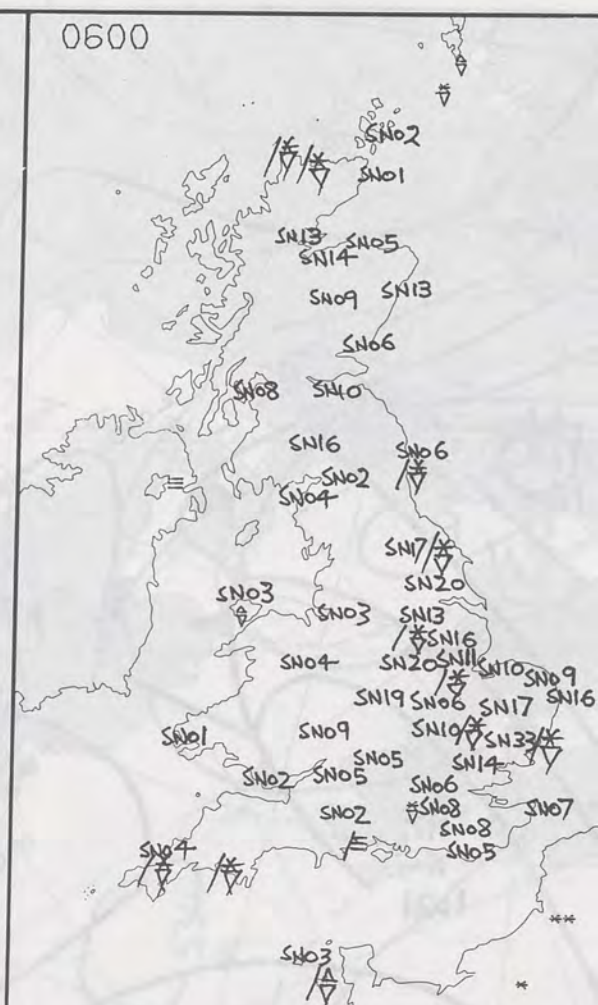 0600
SN02
SN01
SN13
SN05
SN14
SN09
SN13
SN06
SN08
SN10
SN16
SN06
SN02
SN04
SN17
SN20
SN03
SN03
SN13
SN16
SN04
SN20
SN11
SN10
SN09
SN19
SN06
SN17
SN16
SN01
SN09
SN10
SN33
SN05
SN14
SN02
SN05
SN06
SN02
SN08
SN07
SN08
SN04
SN05
SN03